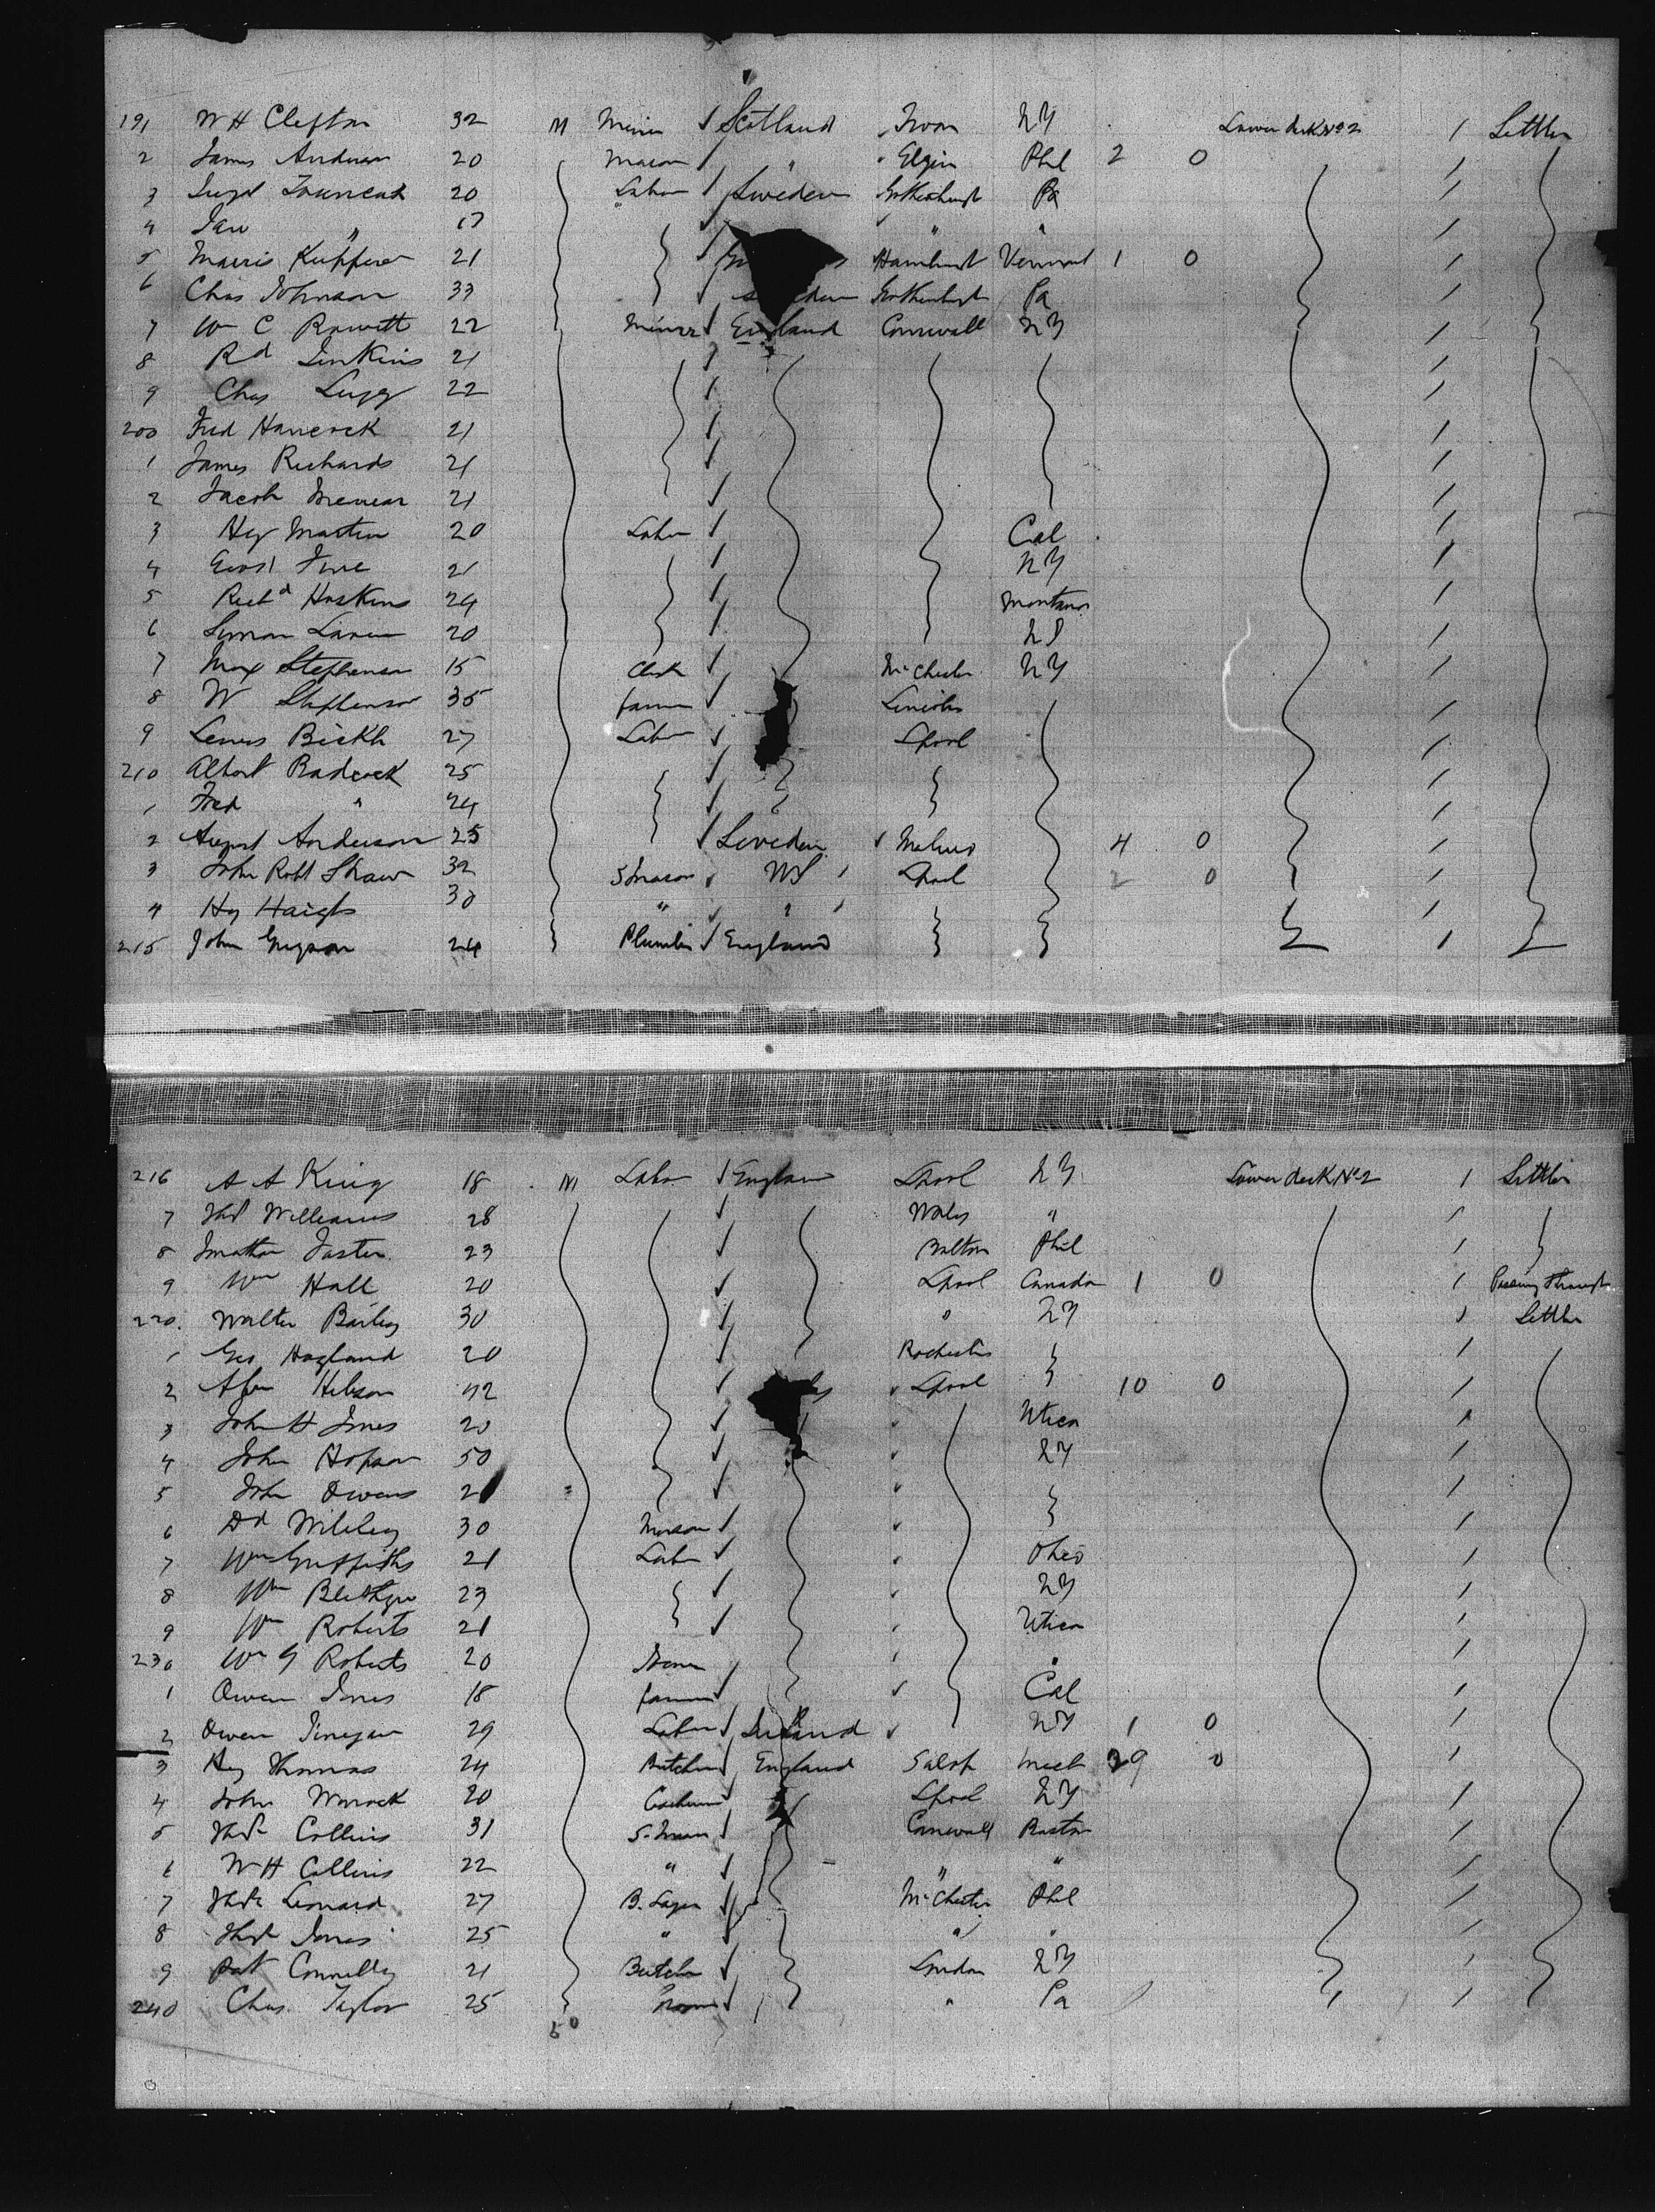 191 W H Clefton 32 M Miner Scotland Troon NY Lower deck No 2 1 Settler
2 James Anderson 20 Mason " Elgin Phil 2 0 1
3 20 Labor Sweden Gothenburg Pa 1
4 " 17 " " 1
5 Kupferer 21 Hamburg Vermont 1 0 1
6 Chas Johnson 33 Gothenburg Pa 1
7 Wm C Rowett 22 Miner England Cornwall NY 1
8 Rd Jenkins 21 1
9 Chas Lugg 22 1
200 Fred Hancock 21 1
1 James Richards 21 1
2 Jacob 21 1
3 Hy Martin 20 Labor Cal 1
4 21 NY 1
5 Richd Hoskins 24 Montana 1
6 20 NY 1
7 Max Stephenson 15 Clerk McChester NY 1
8 W Stephenson 35 farmer Lincoln 1
9 27 Labor Lpool 1
210 Albert Badcock 25 1
1 Fred " 24 1
2 August Anderson 25 Sweden Malmo 4 0 1
3 John Robt Shaw 32 S Mason US Lpool 2 0 1
4 Hy Haigh 30 " " 1
215 John Gregson 24 Plumber England 1
216 A A King 18 M Labor England Lpool NY Lower deck No 2 1 Settler
7 Thos Williams 28 Wales " 1
8 Jonathan Foster 23 Bolton Phil 1
9 Wm Hall 20 Lpool Canada 1 0 1 Passing through
220 Walter Bailey 30 " NY 1 Settler
1 Geo Hogland 20 Rochester 1
2 42 Lpool 10 0 1
3 John H Jones 20 Utica 1
4 John Hopson 50 NY 1
5 John Owens 21 1
6 Dd 30 Mason 1
7 Wm Griffiths 21 Labor Ohio 1
8 Wm Blethyn 23 NY 1
9 Wm Roberts 21 Utica 1
230 Wm G Roberts 20 " 1
1 Owen Jones 18 farmer Cal 1
2 Owen Finegan 29 Labor Ireland NY 1 0 1
3 Hy Thomas 24 Butcher England Salop Mich 29 0 1
4 John 20 Lpool NY 1
5 Thos Collins 31 S. Mason Cornwall Boston 1
6 W H Collins 22 " " " 1
7 Thos Leonard 27 B. Layer McChester Phil 1
8 Thos Jones 25 " " " 1
9 Pat Connelly 21 Butcher London NY 1
240 Chas Taylor 25 " Pa 1
50